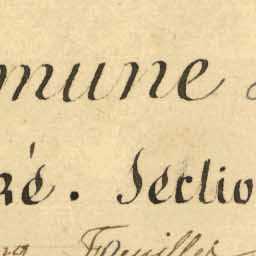 mune
ré. Sectio
Feuilles